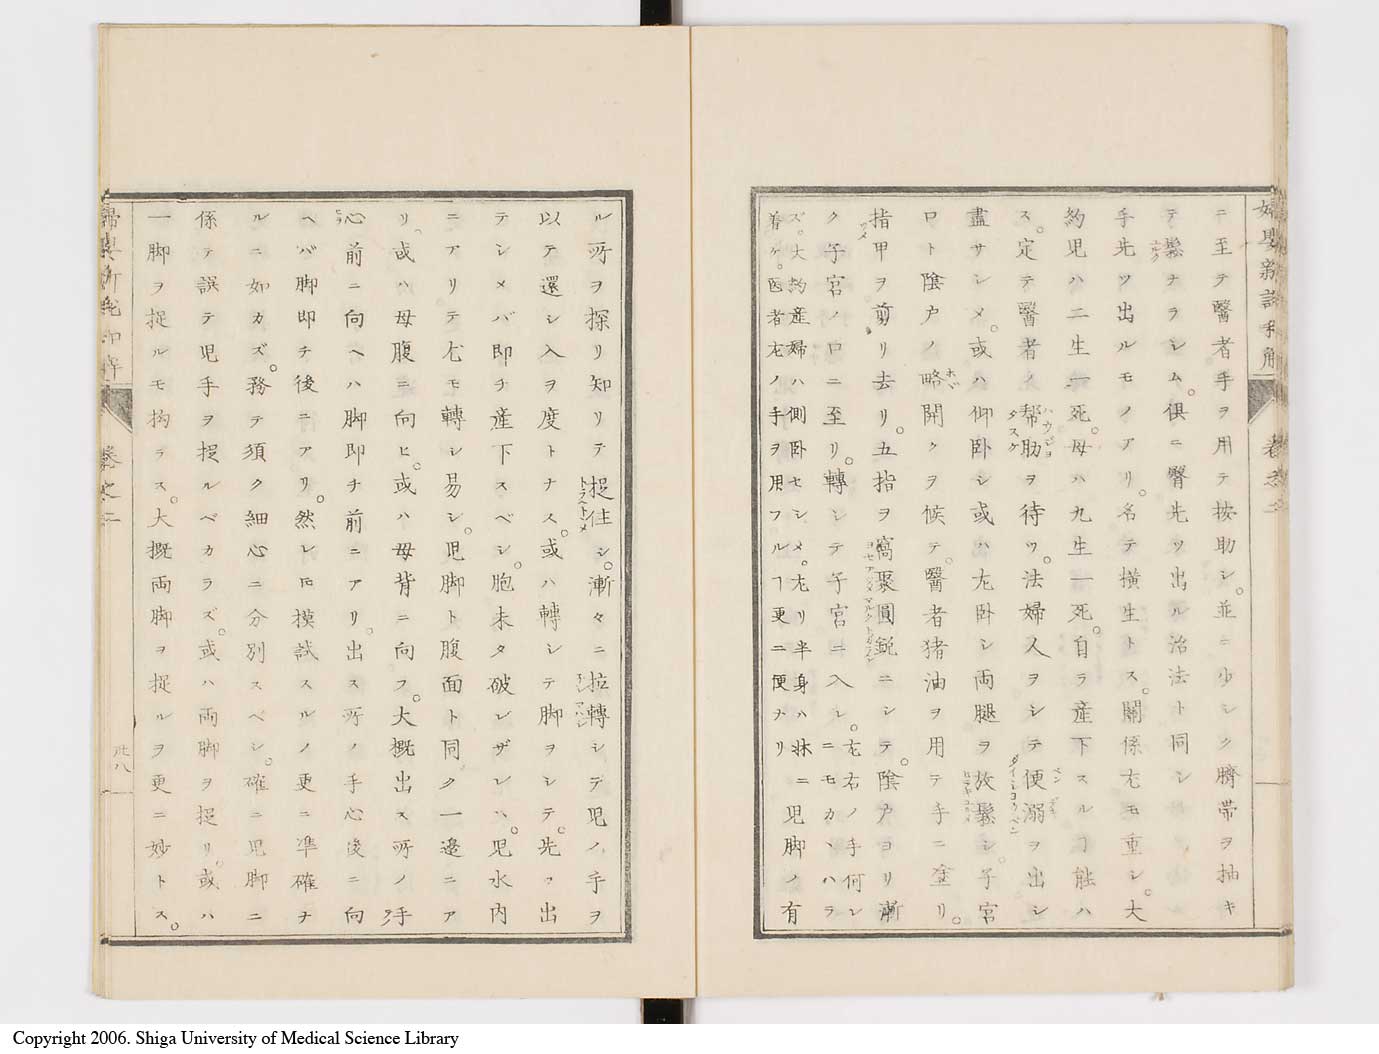 婦嬰新説和解
卷之二
ニ至テ醫者手ヲ用テ按助シ。並ニ少シク臍帯ヲ抽キ
テ鬆ナラシム。倶ニ臀先ツ出ル治法ト同シ
手先ツ出ルモノアリ。名テ横生トス。關係尤モ重シ。大
約児ハ二生一死。母ハ九生一死。自ラ産下スルヿ能ハ
ス。定テ醫者ノ帮助ヲ待ツ。法婦人ヲシテ便溺ヲ出シ
盡サシメ。或ハ仰卧シ或ハ左卧シ両腿ヲ放鬆シ。子宮
口ト陰户ノ略開クヲ候テ。醫者猪油ヲ用テ手ニ塗リ。
指甲ヲ剪リ去リ。五指ヲ窩聚圓鋭ニシテ。陰户ヨリ漸
ク子宮ノ口ニ至リ。轉シテ子宮ニ入レ。左右ノ手何レニモカヽハラ
ズ。大約産婦ハ側卧セシメ。左リ半身ハ牀ニ着ケ。医者左ノ手ヲ用フルヿ更ニ便ナリ 児脚ノ有
ル所ヲ探リ知リテ捉住シ。漸々ニ拉轉シテ児ノ手ヲ
以テ還シ入ヲ度トナス。或ハ轉シテ脚ヲシテ。先ツ出
テシメバ即チ産下スベシ。胞未タ破レザレハ。児水内
ニアリテ尤モ轉シ易シ。児脚ト腹面ト同ク一邉ニア
リ。或ハ母腹ニ向ヒ。或ハ母背ニ向フ。大概出ス所ノ手
心前ニ向ヘハ脚即チ前ニアリ。出ス所ノ手心後ニ向
ヘバ脚即チ後ニアリ。然レ㠪摸試スルノ更ニ凖確ナ
ルニ如カズ。務テ須ク細心ニ分別スベシ。確ニ児脚ニ
係テ誤テ児手ヲ捉ルベカラズ。或ハ両脚ヲ捉リ。或ハ
一脚ヲ捉ルモ拘ラス。大概両脚ヲ捉ルヲ更ニ妙トス。
卷之二
Copyright 2006. Shiga University of Medical Science Library